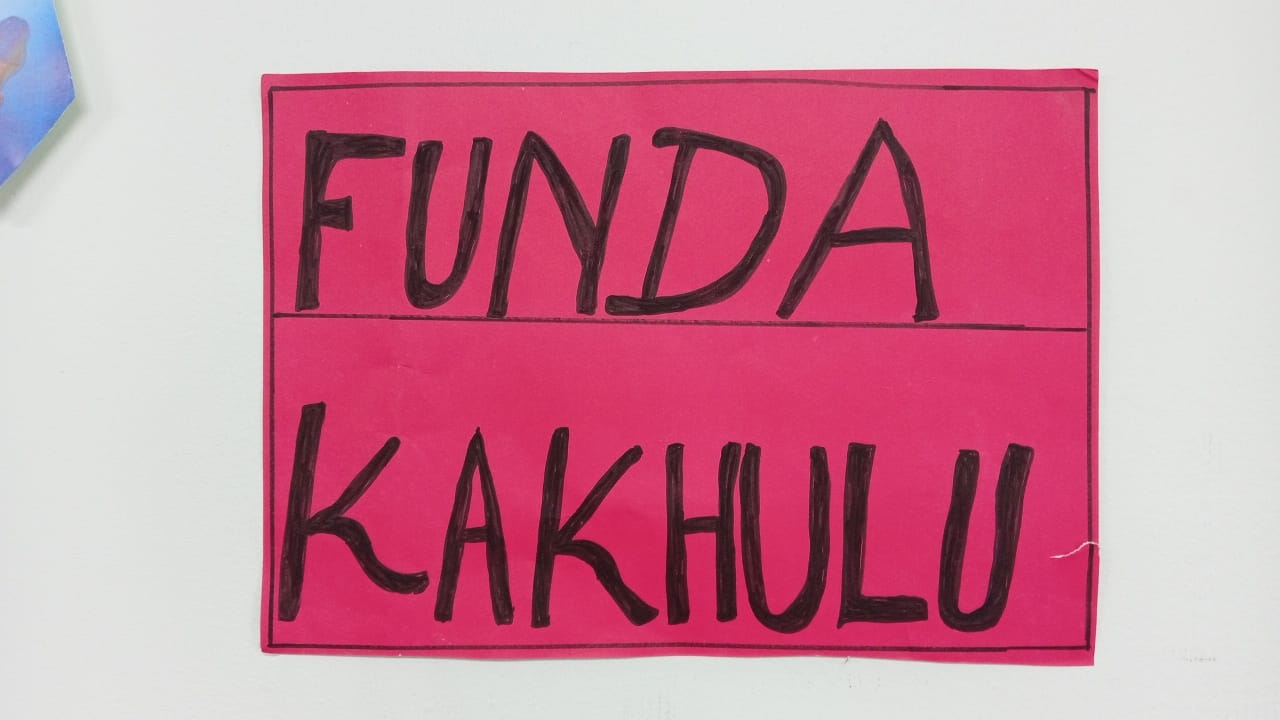 FUNDA
KAKHULU